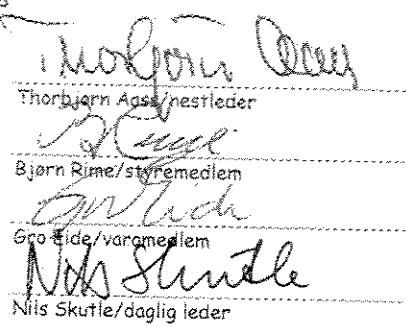 Thorbjørn Aass/nestleder
Bjørn Rime/styremedlem
Gro Eide/varamedlem
Nils Skutle
Nils Skutle/daglig leder